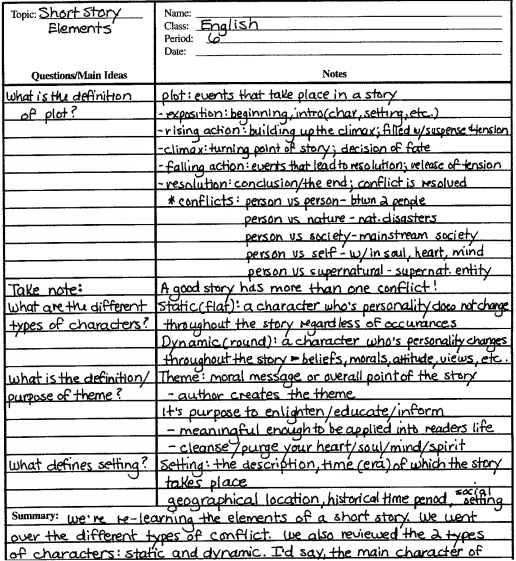 Topic: Short Story
Elements
Name:
Class: English
Period: 6
Date:
Questions/Main Ideas
Notes
What is the definition
of plot?
plot: events that take place in a story
- exposition: beginning, intro(char, setting, etc.)
- rising action: building up the climax; filled w/suspense & tension
- climax: turning point of story; decision of fate
- falling action: events that lead to resolution; release of tension
- resolution: conclusion/the end; conflict is resolved
* conflicts: person vs person - btwn 2 people
person vs nature - nat. disasters
person vs society - mainstream society
person vs self - w/in soul, heart, mind
person vs supernatural - supernat. entity
Take note:
A good story has more than one conflict!
What are the different
types of characters?
Static(flat): a character who's personality does not change
throughout the story regardless of occurances
Dynamic(round): a character who's personality changes
throughout the story - beliefs, morals, attitude, views, etc.
What is the definition/
purpose of theme?
Theme: moral message or overall point of the story
- author creates the theme
It's purpose to enlighten/educate/inform
- meaningful enough to be applied into readers life
- cleanse/purge your heart/soul/mind/spirit
What defines setting?
Setting: the description, time (era) of which the story
takes place
geographical location, historical time period, social setting
Summary: We're re-learning the elements of a short story. We went
over the different types of conflict. We also reviewed the 2 types
of characters: static and dynamic. I'd say, the main character of